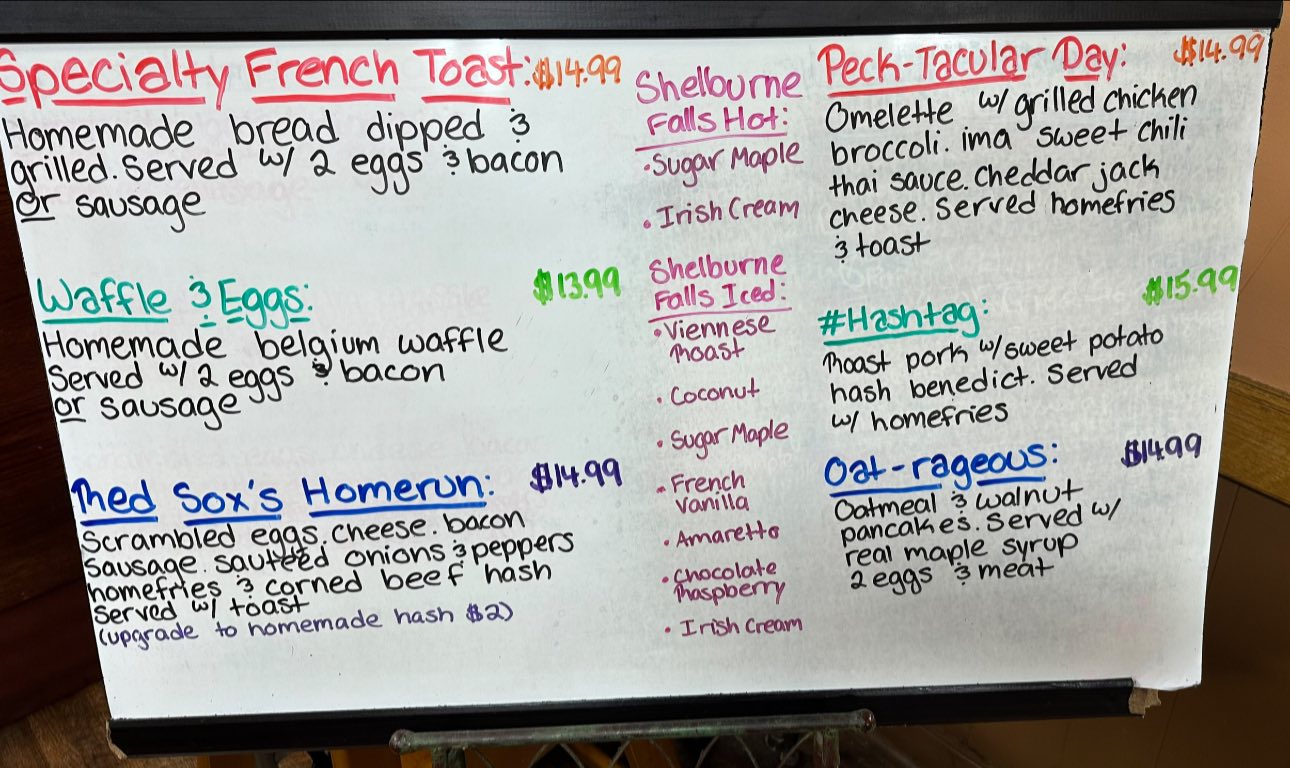 Specialty French Toast: $14.99
Homemade bread dipped &
grilled. Served w/ 2 eggs & bacon
or sausage
Waffle & Eggs: $13.99
Homemade belgium waffle
Served w/ 2 eggs & bacon
or sausage
Red Sox's Homerun: $14.99
Scrambled eggs. cheese. bacon
sausage. sauteed onions & peppers
homefries & corned beef hash
Served w/ toast
(upgrade to homemade hash $2)
Shelburne
Falls Hot:
• Sugar Maple
• Irish Cream
Shelburne
Falls Iced:
• Viennese
Roast
• Coconut
• Sugar Maple
• French
Vanilla
• Amaretto
• Chocolate
Raspberry
• Irish Cream
Peck-Tacular Day: $14.99
Omelette w/ grilled chicken
broccoli. ima sweet chili
thai sauce. cheddar jack
cheese. Served homefries
& toast
#Hashtag: $15.99
Roast pork w/ sweet potato
hash benedict. Served
w/ homefries
Oat-rageous: $14.99
Oatmeal & walnut
pancakes. Served w/
real maple syrup
2 eggs & meat